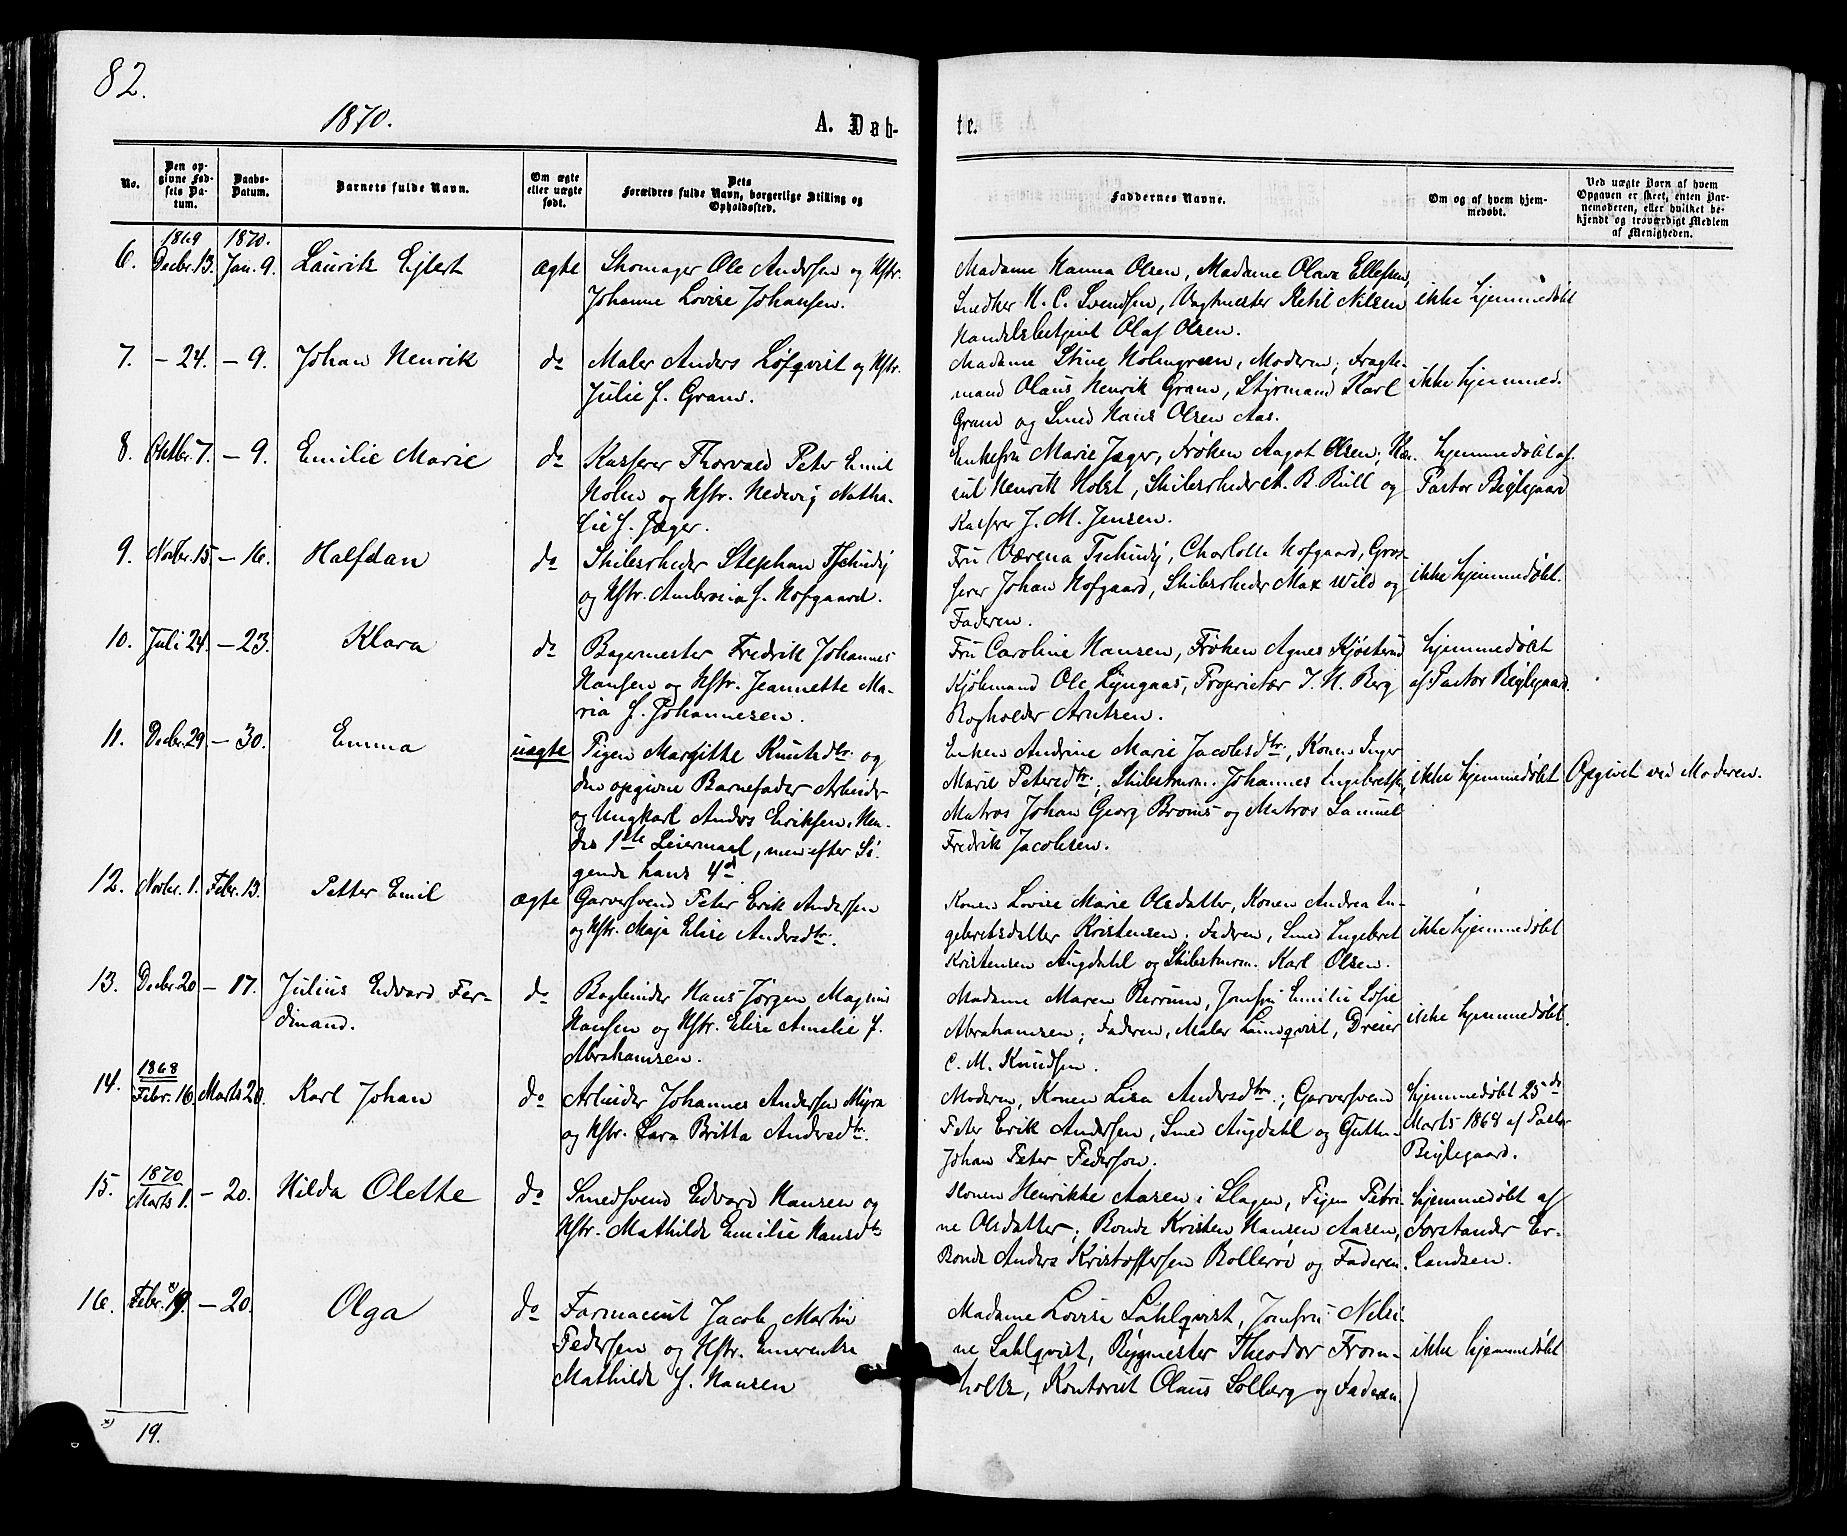 82.
1870.
A. Døb-
te.
No.
Den op-
givne Fød-
sels Da-
tum.
Daabs-
Datum.
Barnets fulde Navn.
Om ægte
eller uægte
født.
Dets
Forældres fulde Navn, borgerlige Stilling og
Opholdssted.
Faddernes Navne.
Om og af hvem hjem-
medøbt.
Ved uægte Barn af hvem
Opgaven er skeet, enten Bar-
nemoderen, eller hvilket be-
kjendt og troværdigt Medlem
af Menigheden.
1869 1870.
6. Decbr. 13. Jan. 9. Laurik Ejlert ægte Skomager Ole Andersen og Hstr.
Johanne Lovise Johansen.
Madame Hanna Olsen, Madame Olava Ellefsen,
Snedker H. C. Svendsen, Vagtmester Ketil Nilsen
Handelsbetjent Olaf Olsen.
ikke hjemmedøbt
7. - 24. - 9. Johan Henrik do Maler Anders Løfqvist og Hstr.
Julie f. Gram.
Madame Stine Holmgreen, Moderen; Fragte-
mand Olaus Henrik Gram, Styrmand Karl
Gram og Smed Hans Olsen Aas.
ikke hjemmed.
8. Oktbr. 7. - 9. Emilie Marie do Kasserer Thorvald Peter Emil
Holm og Hstr. Hedvig Natha-
lie f. Jæger.
Enkefru Marie Jæger, Frøken Aagot Olsen; Kon-
sul Henrik Holst, Skibsrheder A. B. Bull og
Kasserer J. M. Jensen.
hjemmedøbt af
Pastor Bigleaard
9. Novbr. 15 - 16. Halfdan do Skibsrheder Stephan Tschudy
og Hstr. Ambrosia f. Hofgaard.
Fru Værena Tschudy, Charlotte Hofgaard, Gros-
serer Johan Hofgaard, Skibsrheder Max Wild og
Faderen.
ikke hjemmedøbt.
10. Juli 24. - 23. Klara do Bagermester Fredrik Johannes
Hansen og Hstr. Jeannette Ma-
ria f. Johannesen.
Fru Caroline Hansen, Frøken Agnes Kjøsterud
Kjøbmand Ole Lyngaas, Proprietær J. H. Berg
Bogholder Arntsen.
hjemmedøbt
af Pastor Biglegaard.
11. Decbr. 29 - 30. Emma uægte Pigen Margitte Knutsdtr. og
den opgivne Barnefader Arbeider
og Ungkarl Anders Eriksen. Hen-
des 1ste Leiermaal, men efter Si-
gende hans 4de
Enken Andrine Marie Jacobsdtr., Konen Inger
Marie Petersdtr.; Skibstmrm. Johannes Ingebretsen,
Matros Johan Georg Broms og Matros Samuel
Fredrik Jacobsen.
ikke hjemmedøbt
Opgivet ved Moderen.
12. Novbr. 1. Febr. 13. Petter Emil ægte Garversvend Peter Erik Andersen
og Hstr. Maja Elise Andersdtr.
Konen Lovise Marie Olsdatter, Konen Andrea In-
gebretsdatter Kristensen. Faderen, Smed Ingebret
Kristensen Augdahl og Skibstmrm. Karl Olsen.
ikke hjemmedøbt
13. Decbr. 20 - 17. Julius Edvard Fer-
dinand.
do Bogbinder Hans Jørgen Magnus
Hansen og Hstr. Elise Amalie f.
Abrahamsen.
Madame Maren Berrum, Jomfru Emilie Lovise
Abrahamsen; Faderen, Maler Lundqvist, Dreier
C. M. Knudsen.
ikke hjemmedøbt.
1868
14. Febr. 16. Marts 20. Karl Johan do Arbeider Johannes Andersen Myra
og Hstr. Sara Britta Andersdtr.
Moderen, Konen Lisa Andersdtr.; Garversvend
Peter Erik Andersen, Smed Augdahl og
Johan Peter Pederson.
hjemmedøbt 25de
Marts 1868 af Pastor
Biglegaard.
1870
15. Marts 1. - 20. Hilda Olette do Smedsvend Edvard Hansen og
Hstr. Mathilde Emilie Hansdtr.
Konen Henrikke Aasen i Slagen, Pigen Petri-
ne Olsdatter; Bonde Kristen Hansen Aasen,
Bonde Anders Kristoffersen Bollerød og Faderen.
hjemmedøbt af
Forstander Er-
landsen.
16. Febr. x) 19. - 20. Olga do Farmaceut Jacob Martin
Pedersen og Hstr. Emerentse
Mathilde f. Hansen
Madame Lovise Sahlqvist, Jomfru Nelsi-
ne Sahlqvist, Bygmester Theodor From-
holtz, Kontorist Olaus Solberg og Faderen.
ikke hjemmedøbt
x) 19.